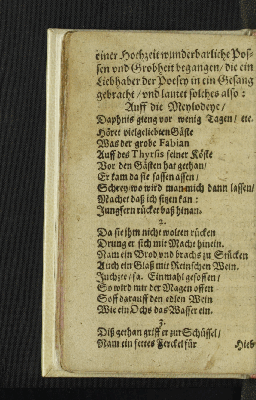 einer Hochzeit wunderbarliche Pos-
sen vnd Grobheit begangen / die ein
Liebhaber der Poesey in ein Gesang
gebracht / vnd lautet solches also :
Auff die Meylodeye /
Daphnis gieng vor wenig Tagen / etc.
Höret vielgeliebten Gäste
Was der grobe Fabian
Auff des Thyrsis seiner Köste
Vor den Gästen hat gethan /
Er kam da sie sassen assen /
Schrey wo wird man mich dann lassen /
Machet daß ich sitzen kan :
Jungfern rücket baß hinan.
2.
Da sie ihm nicht wolten rücken
Drung er sich mit Macht hinein.
Nam ein Brod vnd brachs zu Stücken
Auch ein Glaß mit Reinschen Wein.
Juchze / sa. Einmahl gesoffen /
So wird mir der Magen offen
Soff darauff den edlen Wein
Wie ein Ochs das Wasser ein.
3.
Diß gethan griff er zur Schüssel /
Nam ein fettes Ferckel für
Hieb